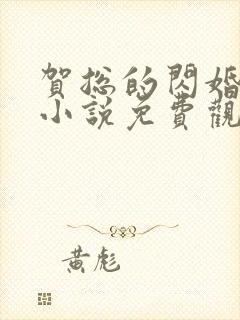 賀总的閃婚
小說免費觀
黃彪